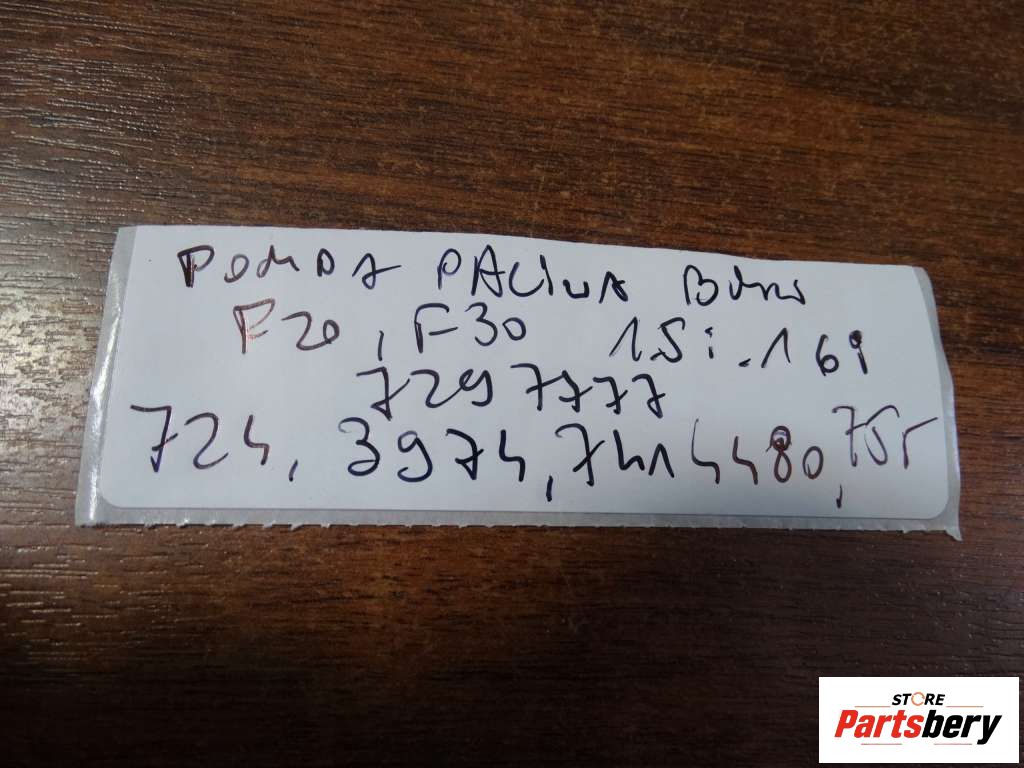 POMPA PALIWA BMW
F20, F30 1.5i. 16i
7297777
724, 3974, 7414480, 75r
STORE
Partsbery